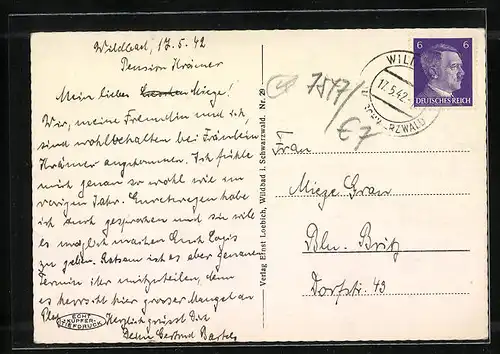 Wildbad, 17.5.42
Pension Krämer
Mein liebes Miege!
Wir, meine Freundin und ich,
sind wohlbehalten bei Fräulein
Krämer angekommen. Ich fühle
mich genau so wohl wie im
vorigen Jahr. Euretwegen habe
ich auch gesprochen und sie will
es möglich machen Euch Logis
zu geben. Ratsam ist es aber genauen
Termin ihr mitzuteilen, denn
es herrscht hier grosser Mangel an
Herzlich grüsst Dich
Deine Gertrud
ECHT
KUPFER-
TIEFDRUCK
Verlag Ernst Loebich, Wildbad i. Schwarzwald. Nr. 29
7547/
€7
WILD
17.5.42
6 6
DEUTSCHES REICH
Frau
Mieze Grau
Bln. Britz
Dorfstr. 43